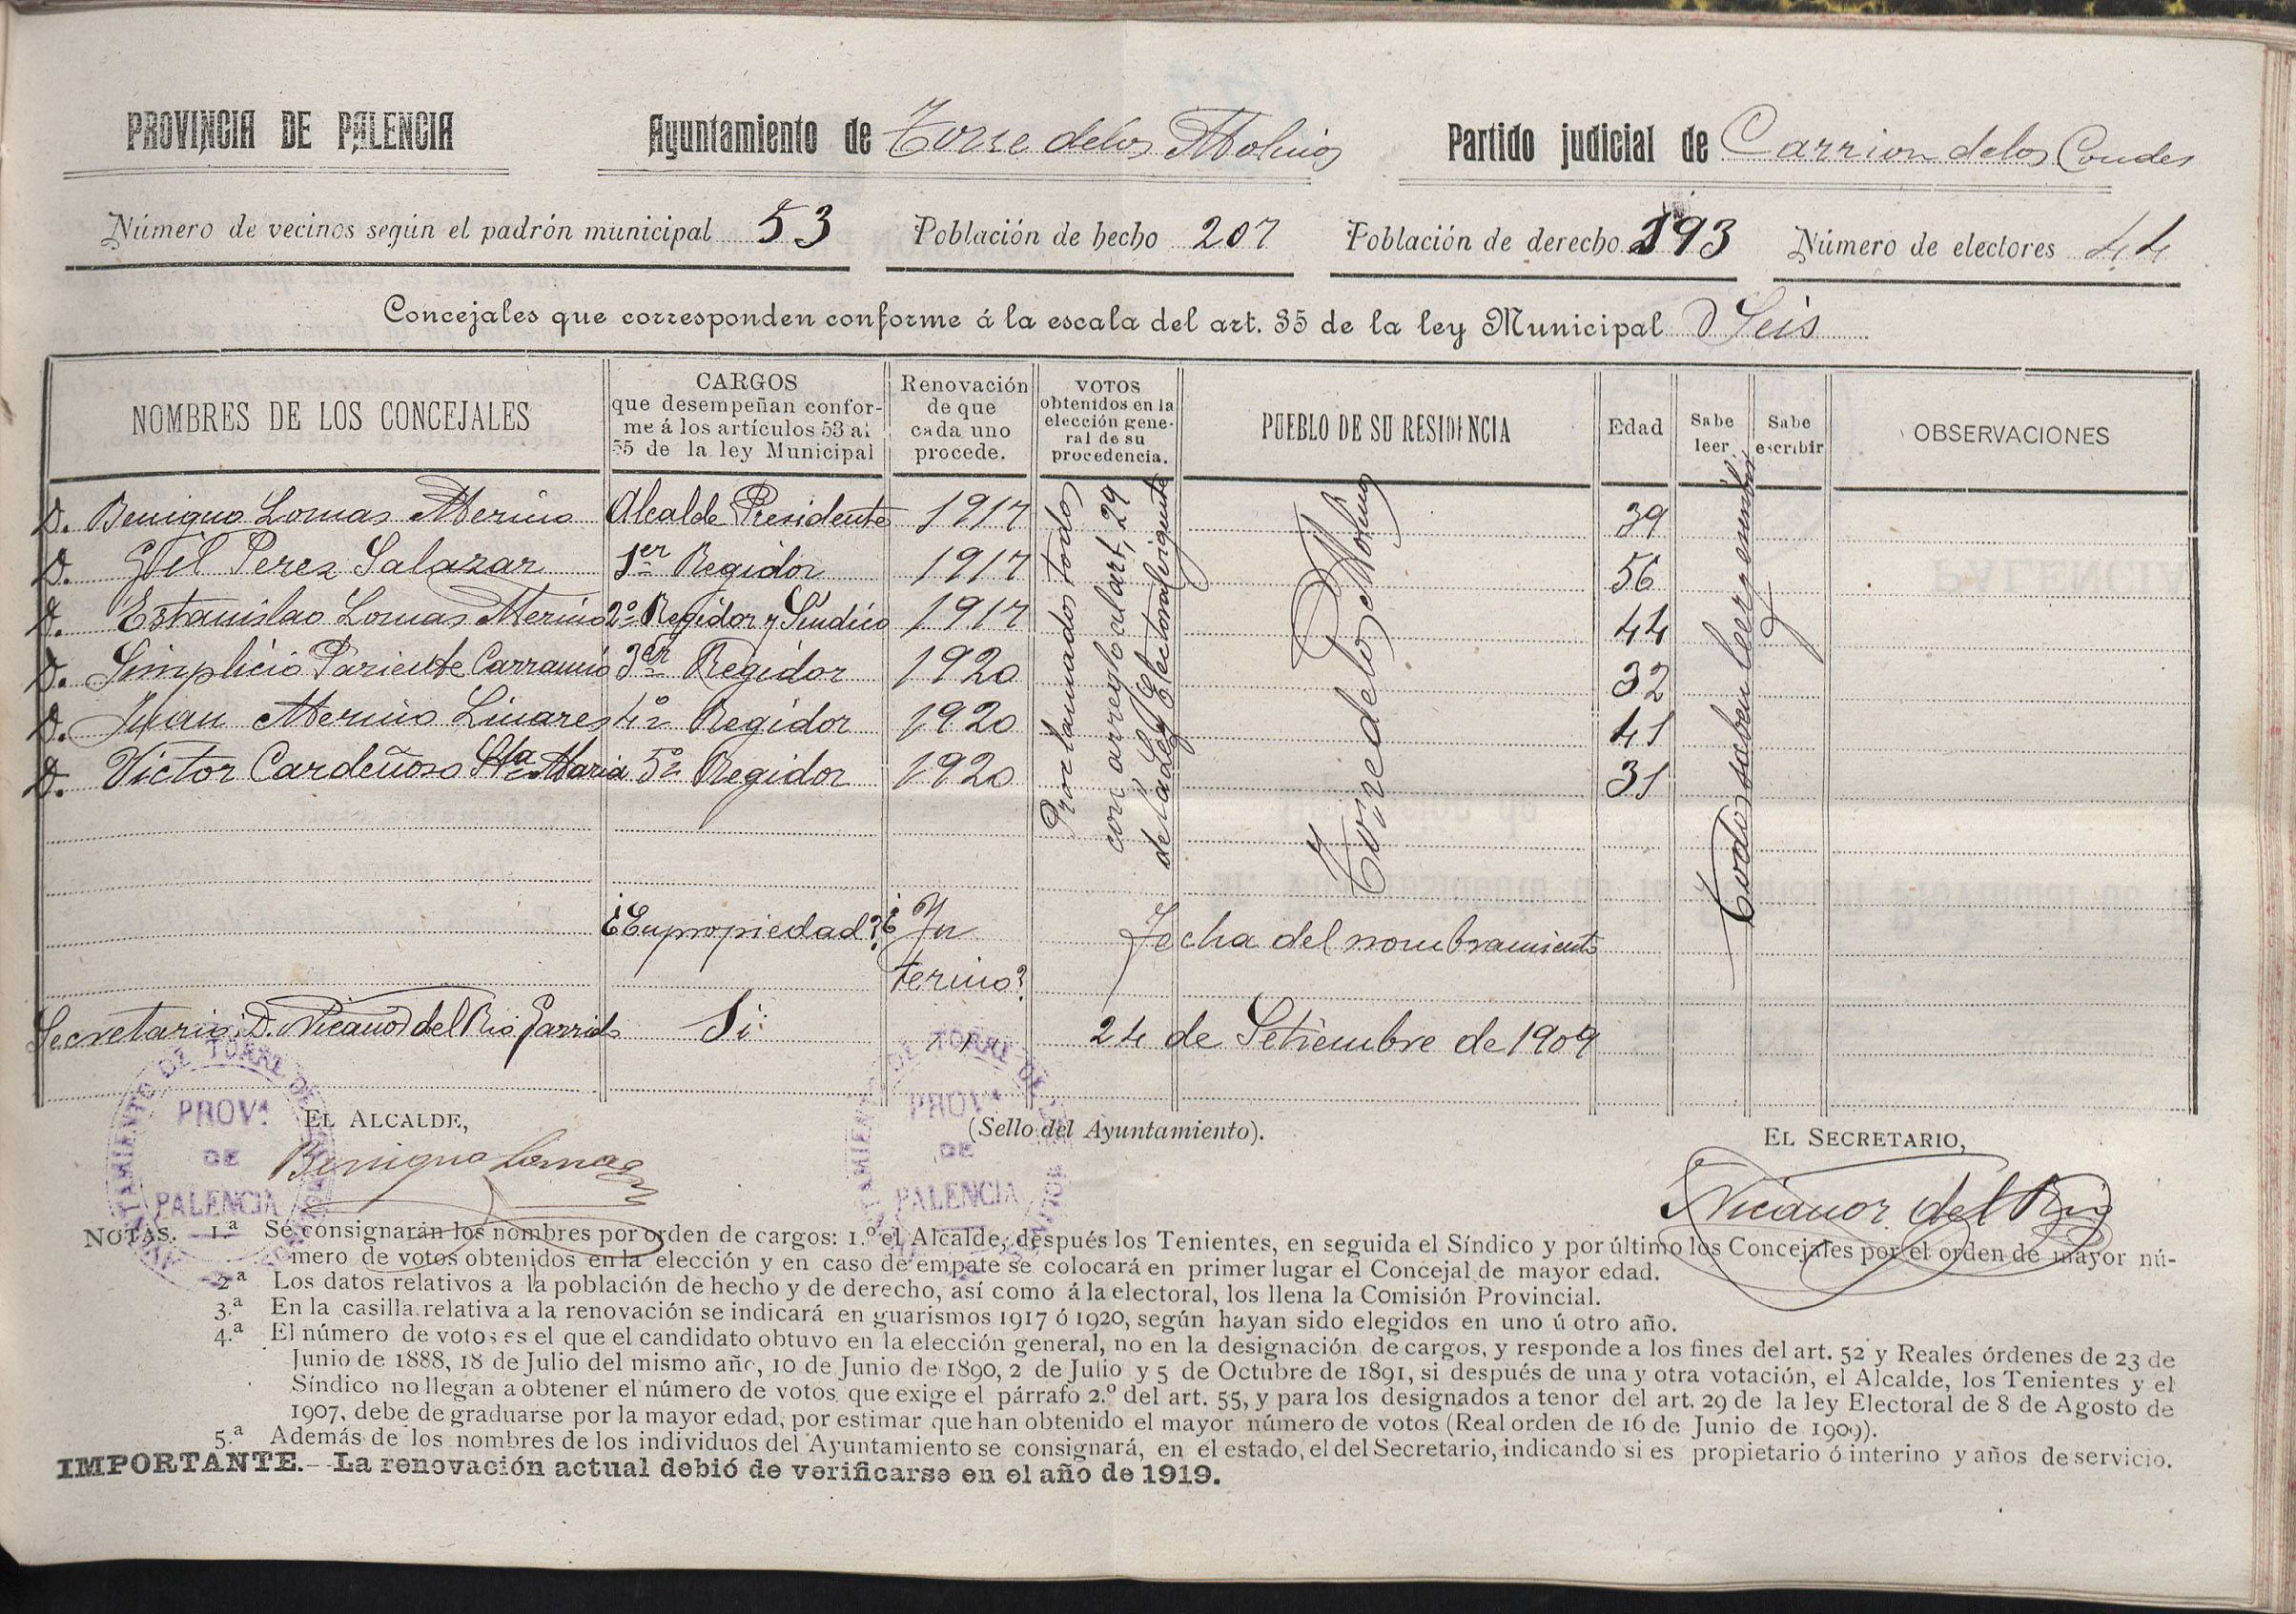 PROVINCIA DE PALENCIA Ayuntamiento de Torre de los Molinos Partido judicial de Carrion de los Condes
Número de vecinos según el padrón municipal 53 Población de hecho 207 Población de derecho 193 Número de electores 44
Concejales que corresponden conforme á la escala del art. 35 de la ley Municipal Seis
NOMBRES DE LOS CONCEJALES
CARGOS
que desempeñan confor-
me á los artículos 53 al
55 de la ley Municipal
Renovación
de que
cada uno
procede.
VOTOS
obtenidos en la
elección gene-
ral de su
procedencia.
PUEBLO DE SU RESIDENCIA
Edad
Sabe
leer
Sabe
escribir
OBSERVACIONES
D. Benigno Lomas Merino Alcalde Presidente 1917 39
D. Gil Perez Salazar 1er Regidor 1917 56
D. Estanislao Lomas Merino 2º Regidor y Síndico 1917 44
D. Simplicio Pariente Carrancio 3er Regidor 1920 32
D. Juan Merino Linares 4º Regidor 1920 41
D. Victor Cardeñoso Sta Maria 5º Regidor 1920 31
Proclamados todos
con arreglo al art, 29
de la Ley Electoral vigente
Torre de los Molinos
Todos saben leer y escribir
¿En propiedad? ¿In Fecha del nombramiento
terino?
Secretario D. Nicanor del Rio Garrido Si 24 de Setiembre de 1909
AYUNTAMIENTO DE TORRE DE LOS MOLINOS
PROVª
DE
PALENCIA
AYUNTAMIENTO DE TORRE DE LOS MOLINOS
PROVª
DE
PALENCIA
EL ALCALDE,
(Sello del Ayuntamiento).
EL SECRETARIO,
Benigno Lomas
Nicanor del Rio
NOTAS. 1.ª Se consignarán los nombres por orden de cargos: 1.º el Alcalde, después los Tenientes, en seguida el Síndico y por último los Concejales por el orden de mayor nú-
mero de votos obtenidos en la elección y en caso de empate se colocará en primer lugar el Concejal de mayor edad.
2.ª Los datos relativos a la población de hecho y de derecho, así como á la electoral, los llena la Comisión Provincial.
3.ª En la casilla relativa a la renovación se indicará en guarismos 1917 ó 1920, según hayan sido elegidos en uno ú otro año.
4.ª El número de votos es el que el candidato obtuvo en la elección general, no en la designación de cargos, y responde a los fines del art. 52 y Reales órdenes de 23 de
Junio de 1888, 18 de Julio del mismo año, 10 de Junio de 1890, 2 de Julio y 5 de Octubre de 1891, si después de una y otra votación, el Alcalde, los Tenientes y el
Síndico no llegan a obtener el número de votos que exige el párrafo 2.º del art. 55, y para los designados a tenor del art. 29 de la ley Electoral de 8 de Agosto de
1907, debe de graduarse por la mayor edad, por estimar que han obtenido el mayor número de votos (Real orden de 16 de Junio de 1909).
5.ª Además de los nombres de los individuos del Ayuntamiento se consignará, en el estado, el del Secretario, indicando si es propietario ó interino y años de servicio.
IMPORTANTE.—La renovación actual debió de verificarse en el año de 1919.